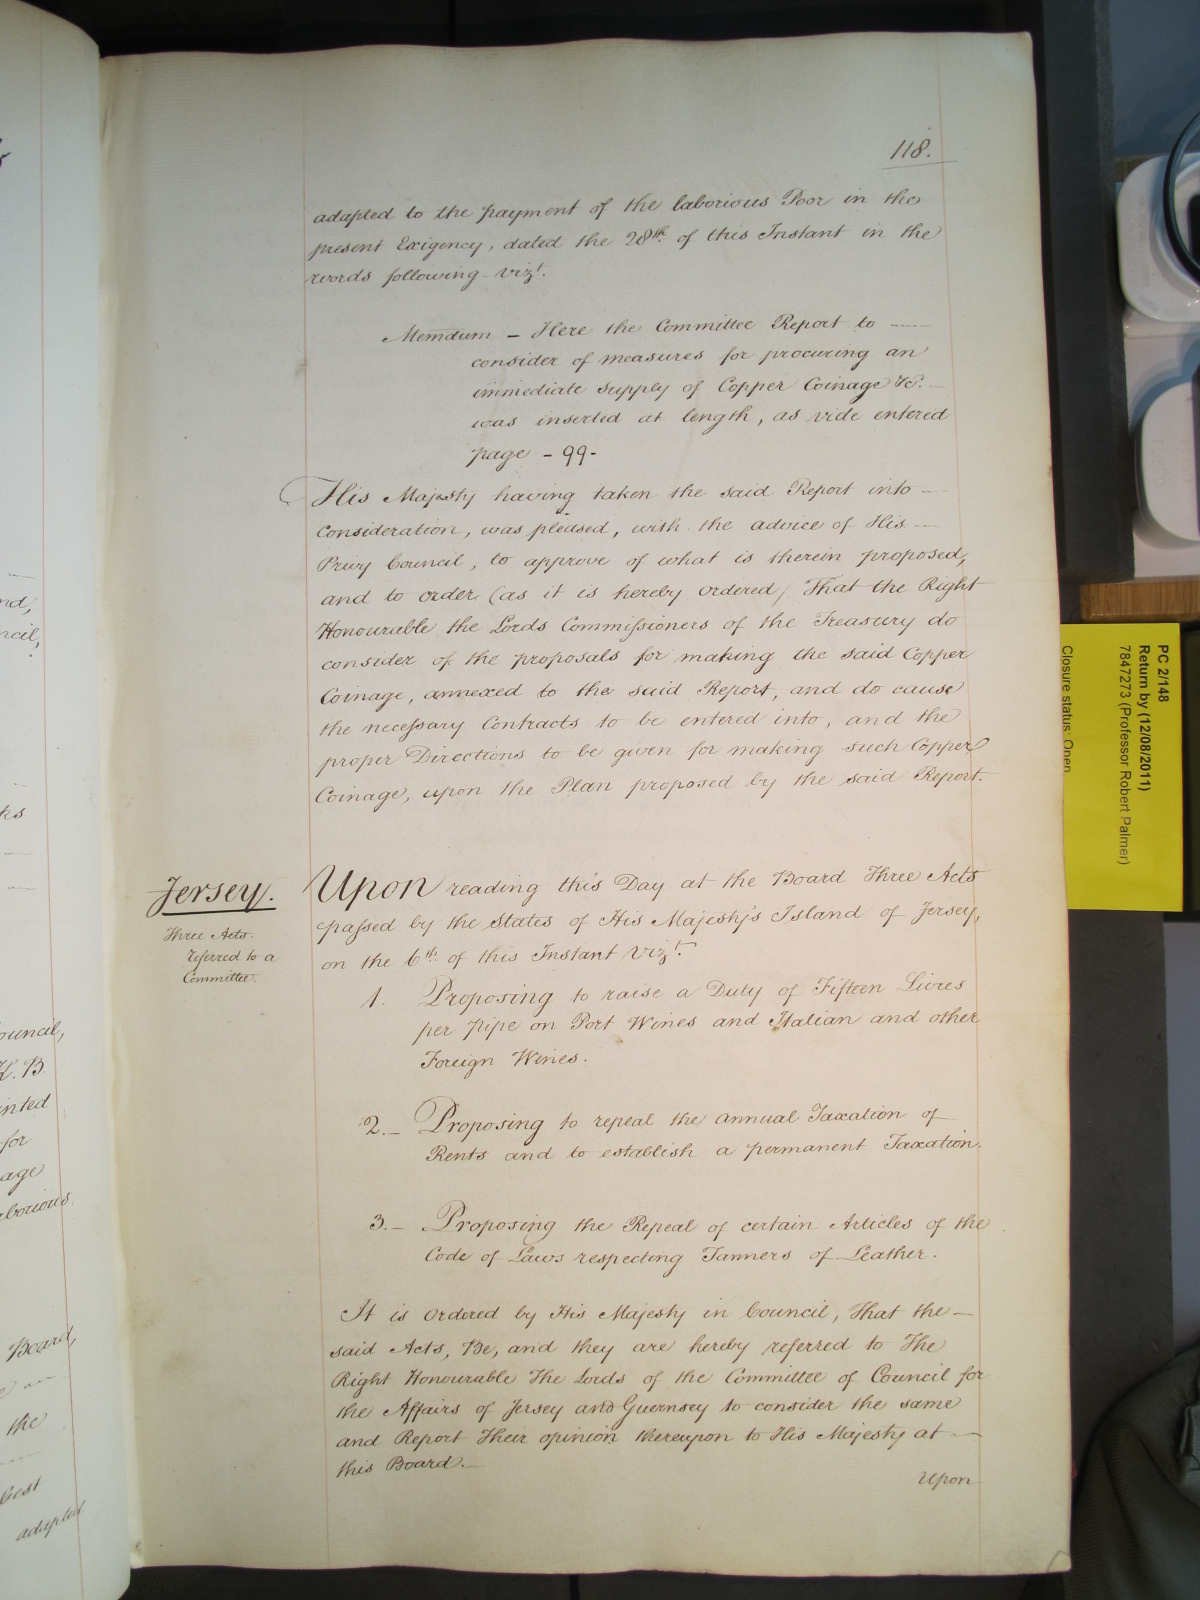 118.
adapted to the payment of the laborious Poor in the
present Exigency, dated the 28th. of this Instant in the
words following vizt.
Memdum - Here the Committee Report to
consider of measures for procuring an
immediate supply of Copper Coinage &c.
was inserted at length, as vide entered
page - 99 -
His Majesty having taken the said Report into
consideration, was pleased, with the advice of His
Privy Council, to approve of what is therein proposed,
and to order (as it is hereby ordered) That the Right
Honourable the Lords Commissioners of the Treasury do
consider of the proposals for making the said Copper
Coinage, annexed to the said Report, and do cause
the necessary Contracts to be entered into, and the
proper Directions to be given for making such Copper
Coinage, upon the Plan proposed by the said Report.
Jersey.
Three Acts.
referred to a
Committee.
Upon reading this Day at the Board Three Acts
passed by the States of His Majesty's Island of Jersey,
on the 6th. of this Instant Vizt.
1. Proposing to raise a Duty of Fifteen Livres
per pipe on Port Wines and Italian and other
Foreign Wines.
2. Proposing to repeal the annual Taxation of
Rents and to establish a permanent Taxation.
3. Proposing the Repeal of certain Articles of the
Code of Laws respecting Tanners of Leather.
It is ordered by His Majesty in Council, that the
said Acts, Be, and they are hereby referred to The
Right Honourable The Lords of the Committee of Council for
the Affairs of Jersey and Guernsey to consider the same
and Report Their opinion thereupon to His Majesty at
this Board.
Upon
nd,
ncil,
ks
ouncil,
K. B.
inted
for
age
aborious
Board,
the
best
adapted
PC 2/148
Return by (12/08/2011)
7847273 (Professor Robert Palmer)
Closure status: Open